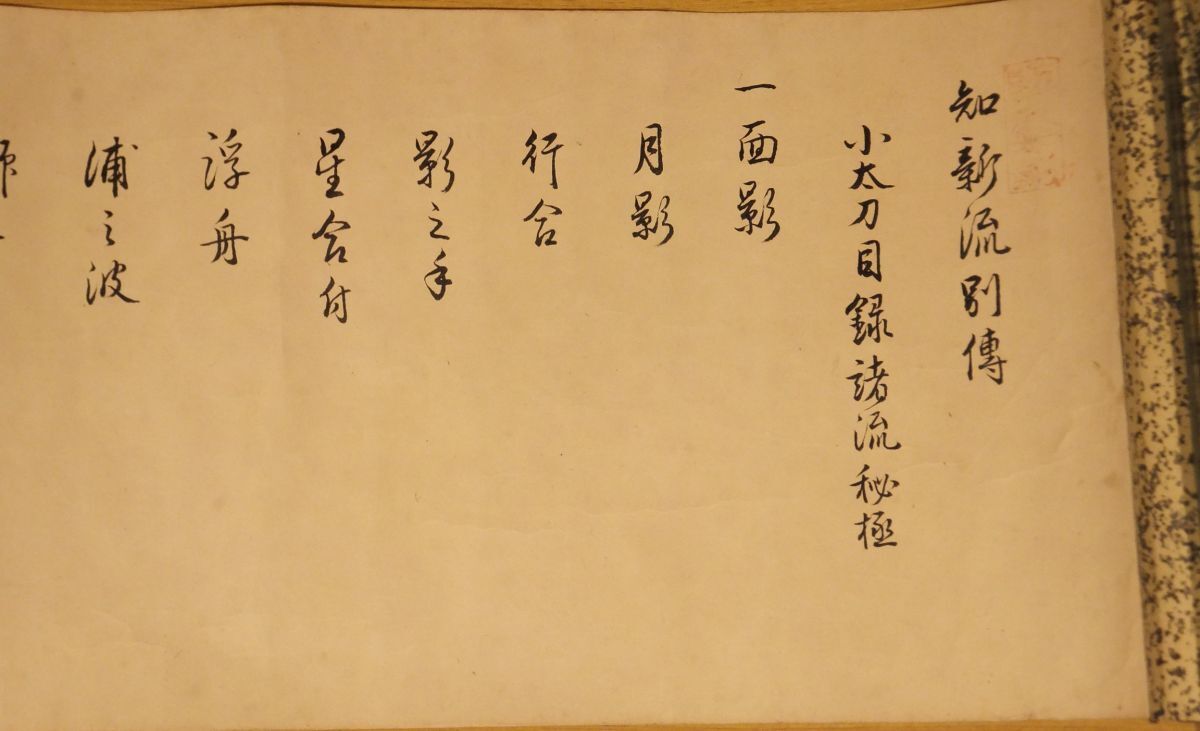 知新流別傳
小太刀目録諸流秘極
一面影
月影
行合
影之手
星合付
浮舟
浦之波